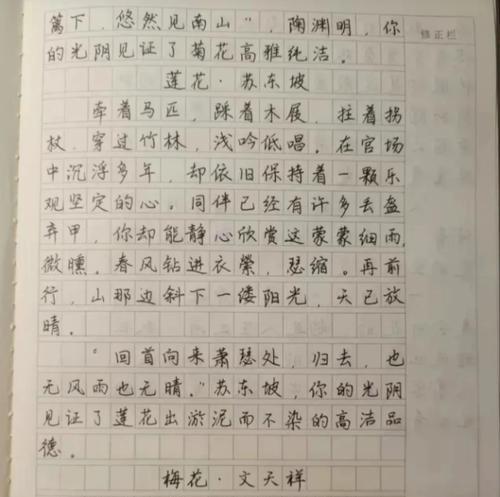 篱下，悠然见南山"，陶渊明，你
的光阴见证了菊花高雅纯洁。
莲花·苏东坡
牵着马匹，踩着木屐，拄着拐
杖，穿过竹林，浅吟低唱。在官场
中沉浮多年，却依旧保持着一颗乐
观坚定的心。同伴已经有许多丢盔
弃甲，你却能静心欣赏这蒙蒙细雨，
微曛。春风钻进衣襟，瑟缩。再前
行，山那边斜下一缕阳光，天已放
晴。
"回首向来萧瑟处，归去，也
无风雨也无晴。"苏东坡，你的光阴
见证了莲花出淤泥而不染的高洁品
德。
梅花·文天祥
修正栏